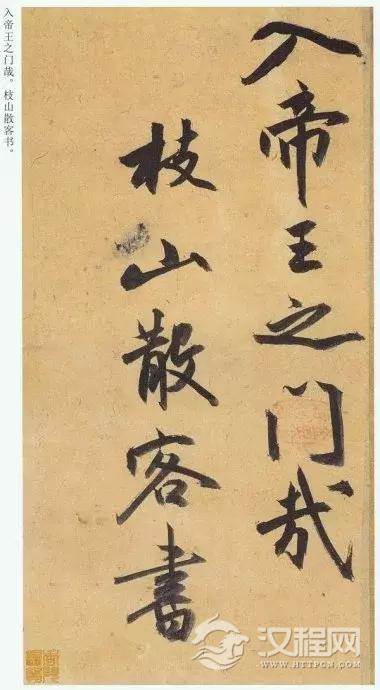 入帝王之门哉。枝山散客书。
入帝王之门哉
枝山散客書
汉程网
HTTPCN.COM